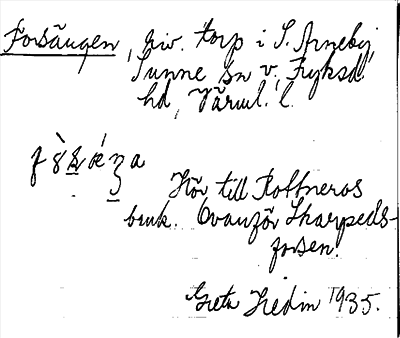 Forsängen, riv. torp i S. Arneby,
Sunne sn v, Fryksd.
hd, Värml. l.
Hör till Rottneros
bruk. Ovanför Skarpeds-
forsen.
Greta Hedin 1935.